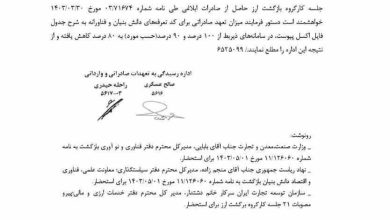 جلسه کارگروه بازگشت ارز حاصل از صادرات ابلاغی طی نامه شماره ۰۳/۷۱۶۷۴ مورخ ۱۴۰۳/۰۳/۳۰
خواهشمند است دستور فرمایند میزان تعهد صادراتی برای کد تعرفه‌های دانش بنیان و فناورانه به شرح جدول
فایل اکسل پیوست، در سامانه‌های ذیربط از ۱۰۰ درصد و ۹۰ درصد(حسب مورد) به ۸۰ درصد کاهش یافته و از
نتیجه این اداره را مطلع نمایند./ ۶۵۲۵۰۹۹
اداره رسیدگی به تعهدات صادراتی و وارداتی
صالح عسکری راحله حیدری
۵۶۱۶ ۵۶۱۷-۰۳
رونوشت:
_ وزارت صنعت،معدن و تجارت جناب آقای بابایی، مدیرکل محترم دفتر فناوری و نو آوری بازگشت به نامه
شماره ۱۱/۱۲۶۰۶۰ مورخ ۱۴۰۳/۰۵/۰۱ برای استحضار.
_ نهاد ریاست جمهوری جناب آقای منجم زاده، مدیرکل محترم دفتر سیاستگذاری؛ معاونت علمی، فناوری و
اقتصاد دانش بنیان بازگشت به نامه شماره ۱۱/۱۲۶۰۶۰ مورخ ۱۴۰۳/۰۵/۰۱ برای استحضار.
_ سازمان توسعه تجارت ایران سرکار خانم دشتدار، مدیر کل محترم دفتر خدمات ارزی و مالی؛پیرو
مصوبات ۲۱ جلسه کارگروه برگشت ارز برای استحضار.